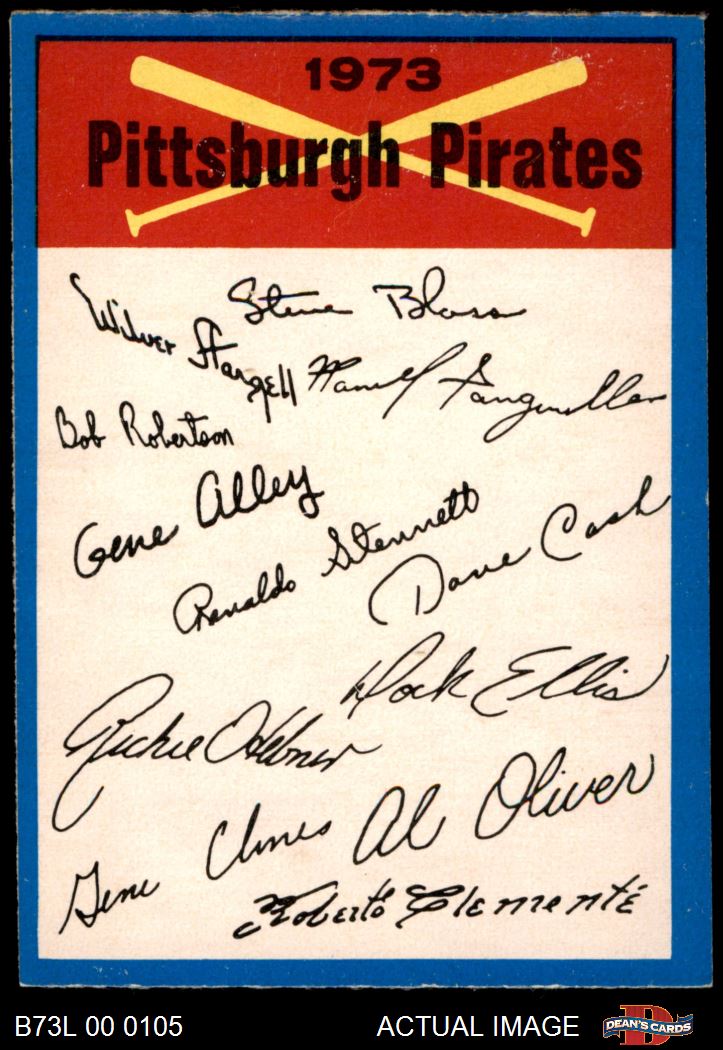 1973
Pittsburgh Pirates
Steve Blass
Wilver Stargell
Manuel Sanguillen
Bob Robertson
Gene Alley
Renaldo Stennett
Dave Cash
Dock Ellis
Richie Hebner
Al Oliver
Gene Clines
Roberto Clemente
B73L 00 0105
ACTUAL IMAGE
D
DEAN'S CARDS